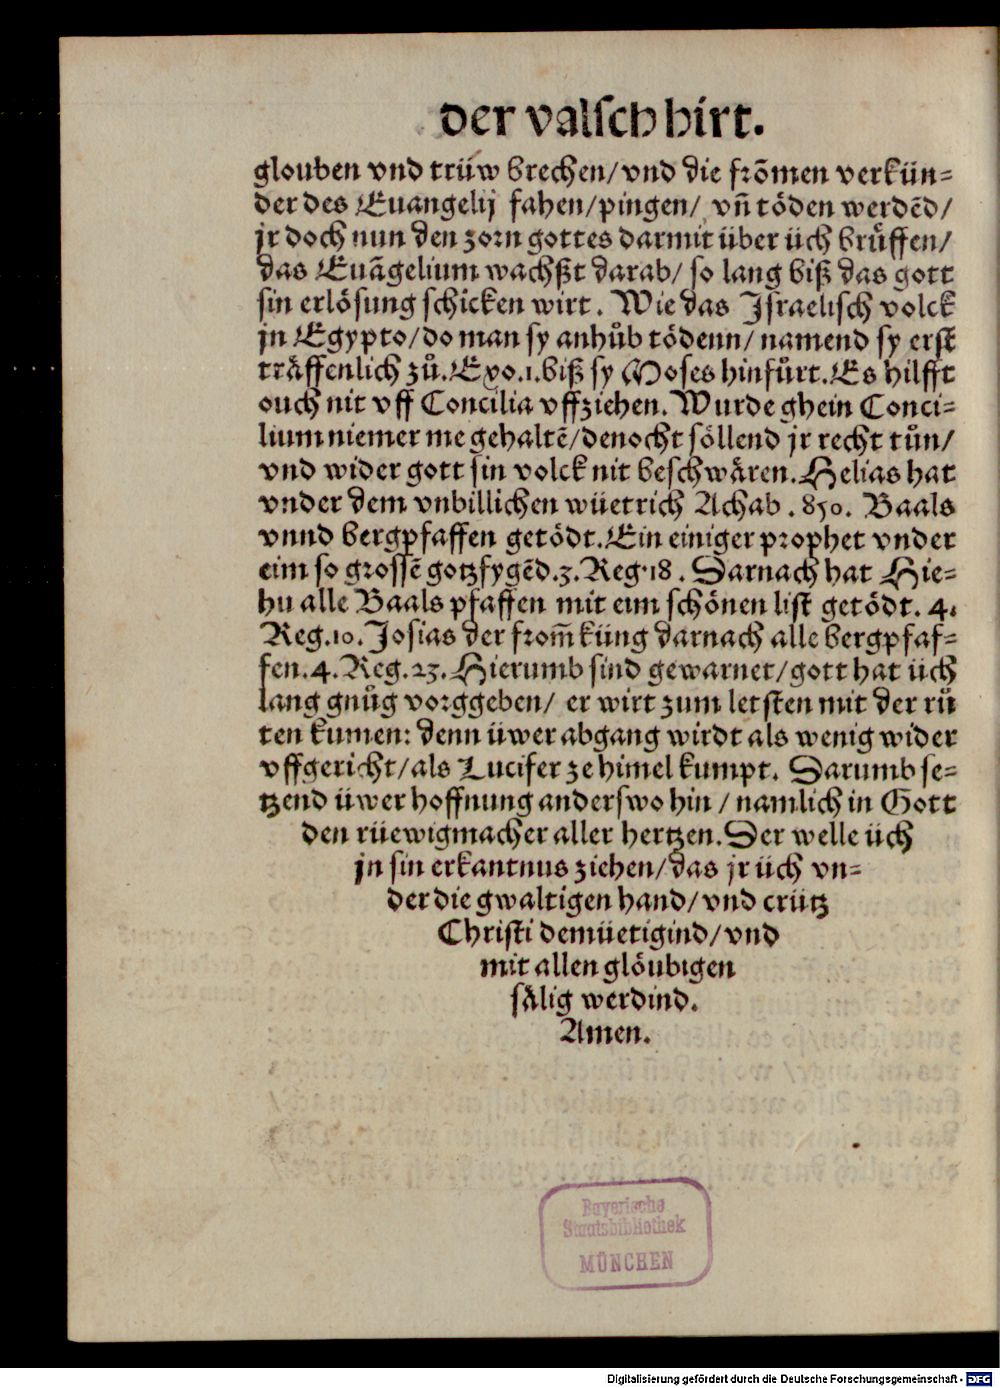 der valsch hirt.
glouben vnd trüw brechen/vnd die frõmen verkün-
der des Euangelij fahen/pingen/ vñ töden werdẽd/
jr doch nun den zorn gottes darmit über üch brüffen/
das Euãgelium wachßt darab/ so lang biß das gott
sin erlösung schicken wirt. Wie das Israelisch volck
jn Egypto/do man sy anhůb tödenn/ namend sy erst
träffenlich zů. Exo.1.biß sy Moses hinfůrt. Es hilfft
ouch nit vff Concilia vffziehen. Wurde ghein Conci-
lium niemer me gehaltẽ/denocht söllend jr recht tůn/
vnd wider gott sin volck nit beschwären. Helias hat
vnder dem vnbillichen wüetrich Achab .850. Baals
vnnd bergpfaffen getödt. Ein einiger prophet vnder
eim so grossẽ gotzfygẽd.3.Reg.18. Darnach hat Hie-
hu alle Baals pfaffen mit eim schönen list getödt. 4.
Reg.10. Josias der from̃ küng darnach alle bergpfaf-
fen.4. Reg.23. Hierumb sind gewarnet/gott hat üch
lang gnůg vorggeben/ er wirt zum letsten mit der rů
ten kumen: denn üwer abgang wirdt als wenig wider
vffgericht/als Lucifer ze himel kumpt. Darumb se-
tzend üwer hoffnung anderswo hin / namlich in Gott
den rüewigmacher aller hertzen. Der welle üch
jn sin erkantnus ziehen/das jr üch vn-
der die gwaltigen hand/vnd crütz
Christi demüetigind/vnd
mit allen glöubigen
sälig werdind.
Amen.
Bayerische
Staatsbibliothek
MÜNCHEN
Digitalisierung gefördert durch die Deutsche Forschungsgemeinschaft - DFG